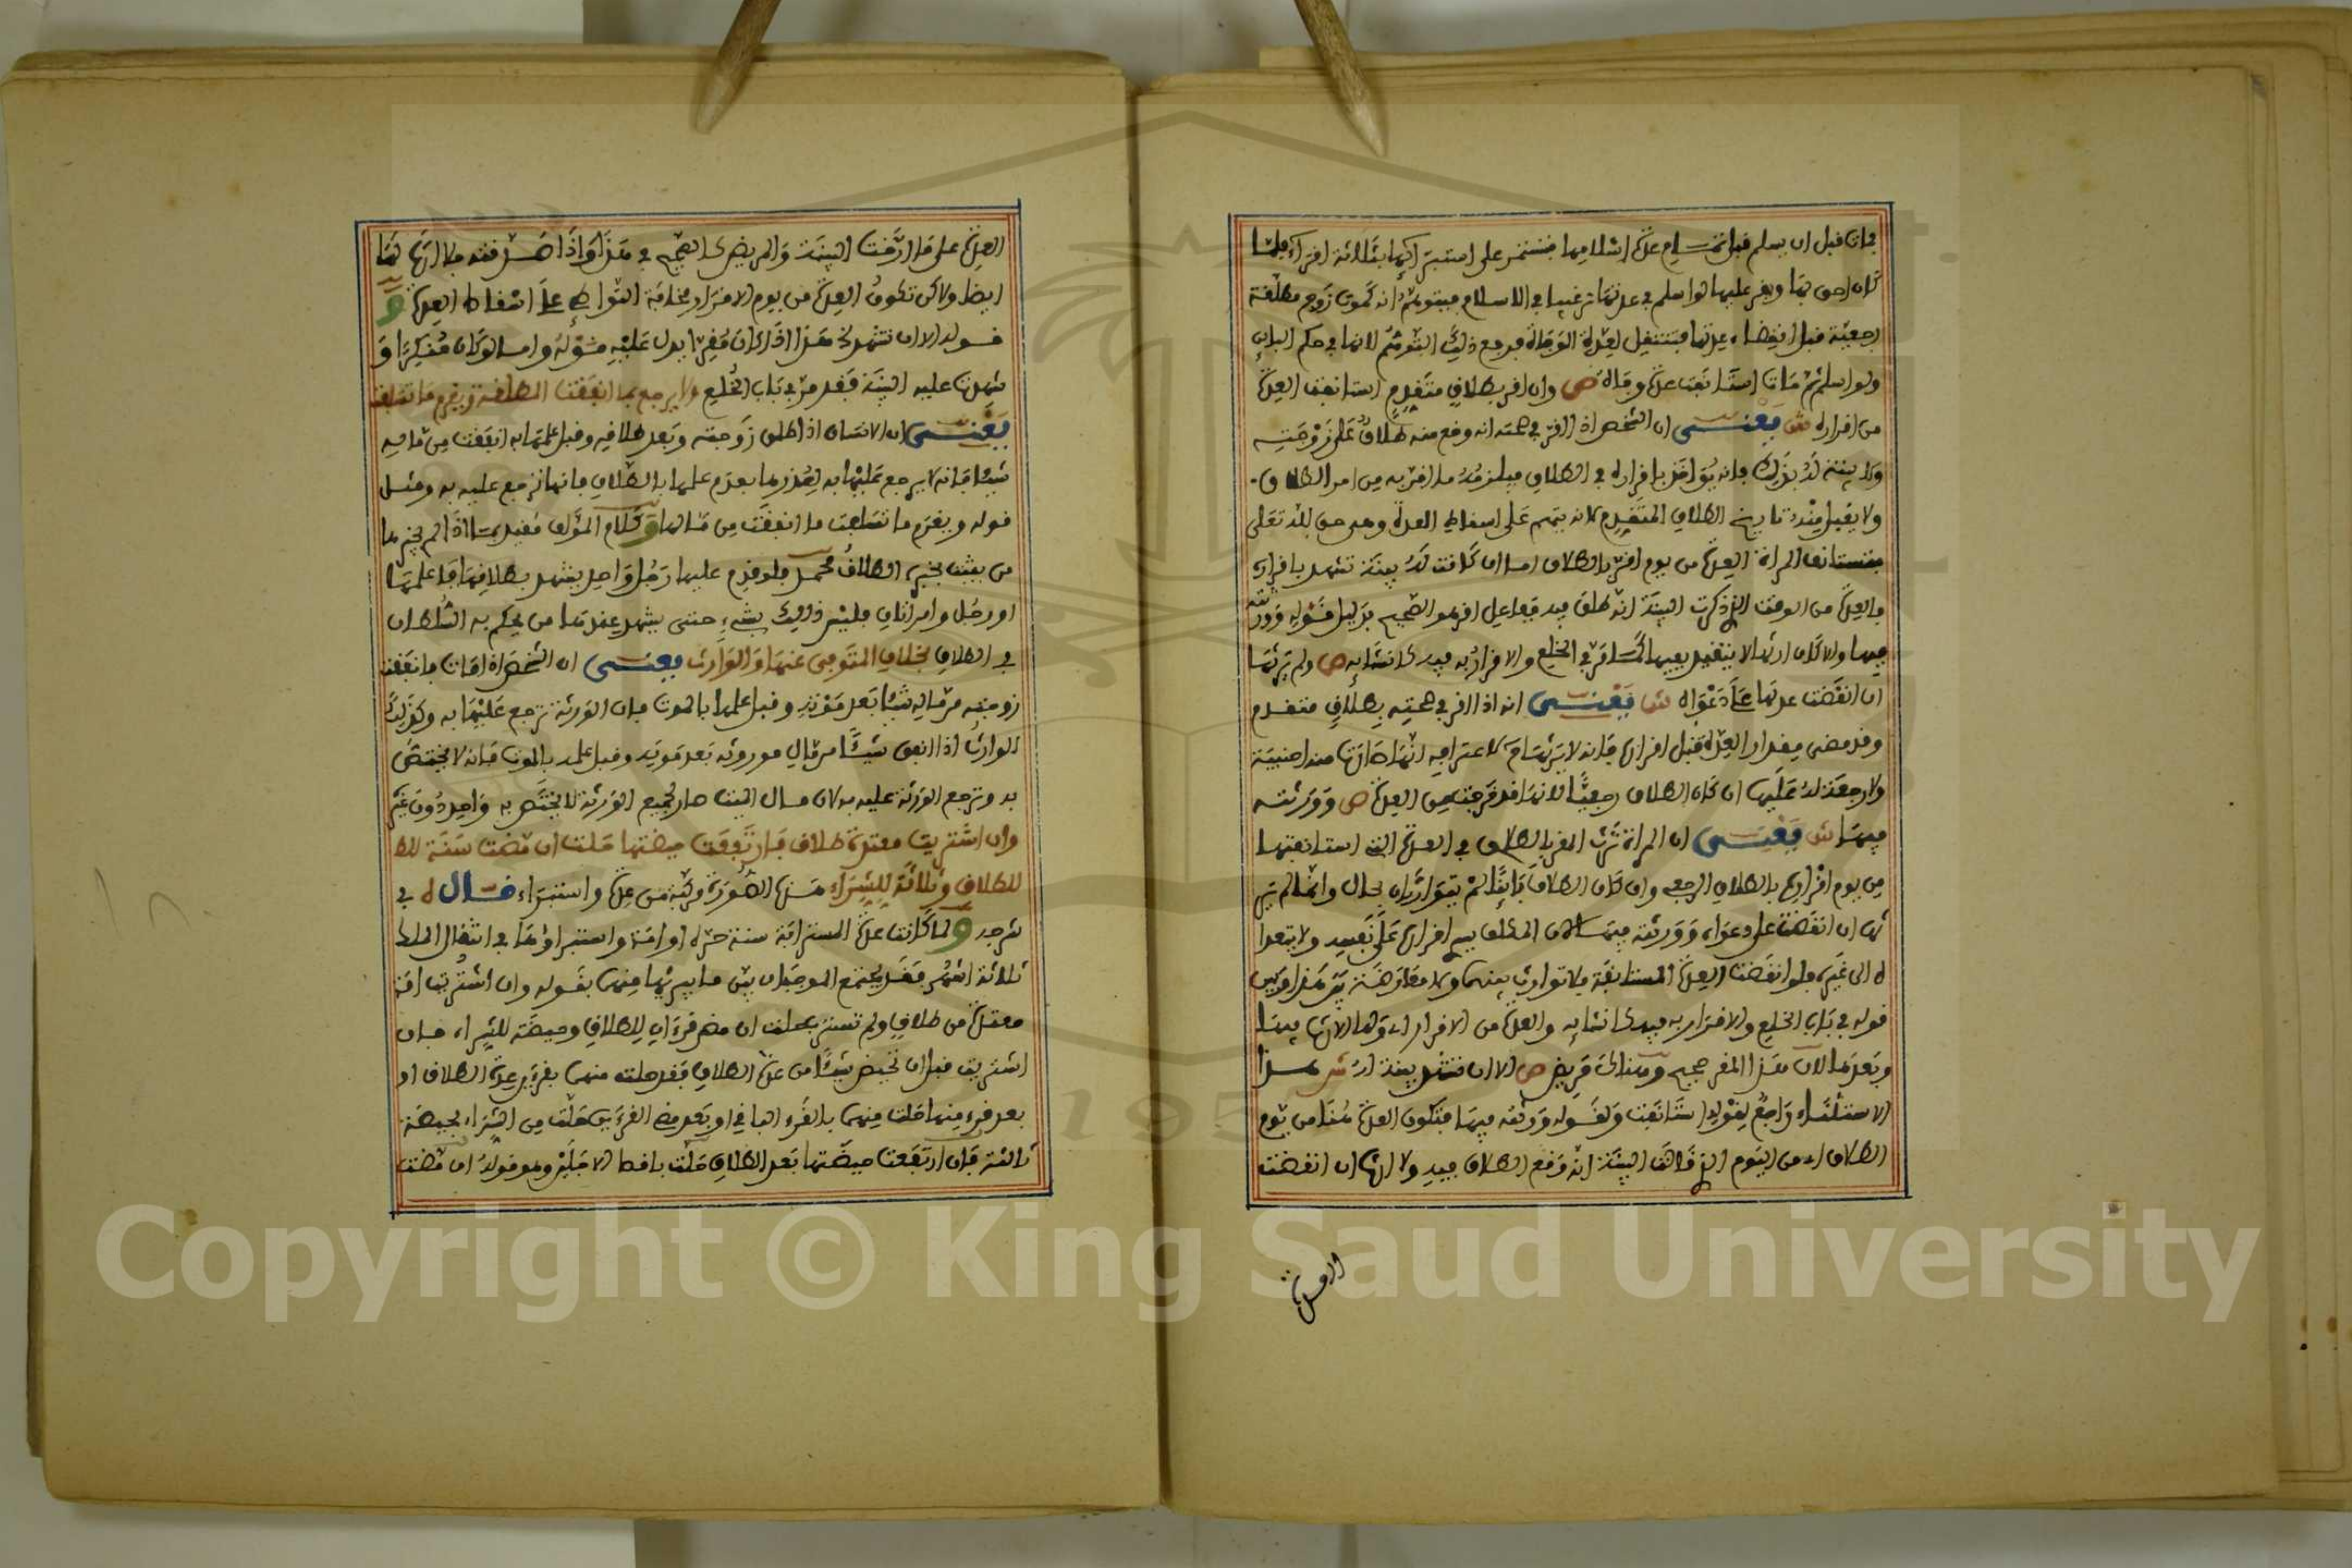 فمات قبل ان يسلم قبل تمام عدة اسلامها فتستمر على استبرائها بثلاثة اقراء فلما
كان احق بها ويقر عليها لو اسلم في عدتها ترغيبا في الاسلام فيتوهم انه كموت زوج مطلقة
رجعية قبل انقضاء عدتها فتنتقل لعدة الوفاة فدفع ذلك التوهم لانها في حكم البائن
ولو اسلم ثم مات استانفت عدة وفاة ص وان اقر بطلاق متقدم استانفت العدة
من اقراره ش يعني ان الشخص اذا اقر في صحته انه وقع منه طلاق على زوجته
ولا بينة له بذلك فانه يؤاخذ باقراره في الطلاق فيلزمه ما اقر به من امر الطلاق
ولا يقبل منه تاريخ الطلاق المتقدم لانه يتهم على اسقاط العدة وهو حق لله تعلى
فتستانف المراة العدة من يوم اقر بالطلاق اما ان كانت له بينة تشهد باقراره
فالعدة من الوقت الذي ذكرت البينة انه طلق فيه ففاعل اقر هو الصحيح بدليل قوله وورثته
فيها والا كان ارثها لا يتقيد بعيها كما مر في الخلع والاقرار به فيه كانشائه ص ولم يرثها
ان انقضت عدتها على دعواه ش يعني انه اذا اقر في صحته بطلاق متقدم
وقد مضى مقدار العدة قبل اقراره فانه لا يرثها لاعترافه انها صارت منه اجنبية
ولا رجعة له عليها ان كان الطلاق رجعيا لانها قد خرجت من العدة ص وورثته
فيها ش يعني ان المراة ترث المقر بالطلاق في العدة التي استانفتها
من يوم اقراره بالطلاق الرجعي وان كان الطلاق بائنا لم يتوارثان بحال وانما لم ير
ثها ان انقضت على دعواه وورثته فيها لان المكلف يسري اقراره على نفسه ولا يتعدا
ه الى غيره فلو انقضت العدة المستانفة فلا توارث بينهما ولا معارضة بين هذا وبين
قوله في باب الخلع والاقرار به فيه كانشائه والعدة من الاقرار اي ولها الارث فيها
وبعدها لان هذا المقر صحيح وهناك مريض ص الا ان تشهد بينة له ش هذا
الاستثناء راجع لقوله استانفت ولقوله ورثته فيها فتكون العدة هنا من يوم
الطلاق اي من اليوم الذي قالت البينة انه وقع الطلاق فيه ولا ارث ان انقضت
العدة على ما ارخت البينة والمريض كالصحيح في هذا واذا صدقته فلا ارث لها
ايضا ولاكن تكون العدة من يوم الاقرار مخافة التواطئ على اسقاط العدة و
قوله الا ان تشهد له هذا اذا كان مقرا يدل عليه قوله واما لو كان منكرا و
شهدت عليه البينة فقد مر في باب الخلع ولا يرجع بما انفقت المطلقة ويغرم ما تسلفت
يعني ان الانسان اذا طلق زوجته وبعد طلاقه وقبل علمها به انفقت من ماله
شيئا فانه لا يرجع عليها به لعذرها بعدم علمها بالطلاق فانها ترجع عليه به ومثل
قوله ويغرم ما تسلفت ما انفقت من مالها وكلام المؤلف مقيد بما اذا لم يخبرها
من يثبت بخبره الطلاق محمد فلو قدم عليها رجل واحد يشهد بطلاقها فاعلمها
او رجل وامراتان فليس ذلك بشيء حتى يشهد عندها من يحكم به السلطان
في الطلاق بخلاف المتوفى عنها والوارث يعني ان الشخص اذا مات فانفقت
زوجته من ماله شيئا بعد موته وقبل علمها بالموت فان الورثة ترجع عليها به وكذلك
الوارث اذا انفق شيئا من مال موروثه بعد موته وقبل علمه بالموت فانه لا يختص
به وترجع الورثة عليه به لان مال الميت صار لجميع الورثة لا يختص به واحد دون غيره
وان اشتريت معتدة طلاق فارتفعت حيضتها حلت ان مضت سنة للط
للطلاق وثلاثة للشراء هذه الصورة مركبة من عدة واستبراء قال في
شرحه ولما كانت عدة المسترابة سنة حرة او امة واستبراؤها في انتقال الملك
ثلاثة اشهر فقد يجتمع الموجبان بين ما يبرئها منهما بقوله وان اشتريت امة
معتدة من طلاق ولم تسترب حلت ان مضى قرءان للطلاق وحيضة للشراء فان
اشتريت قبل ان تحيض شيئا من عدة الطلاق فقد حلت منهما بقرءي عدة الطلاق او
بعد قرء منها حلت منهما بالقرء الباقي او بعد مضي القرءين حلت من الشراء بحيضة
ثالثة فان ارتفعت حيضتها بعد الطلاق حلت باقصا الاجلين وهو قوله ان مضت
ارتفعت
Copyright © King Saud University